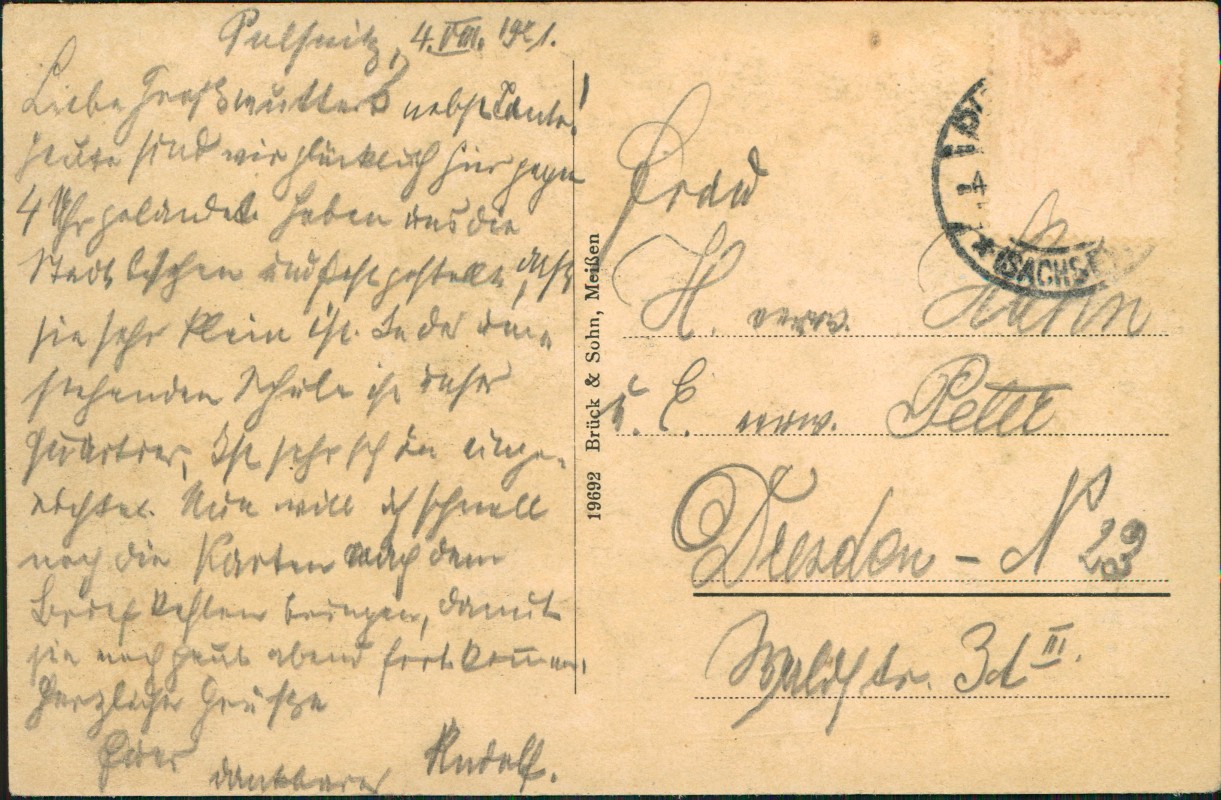 Pulsnitz, 4. VIII. 1921.
Liebe Großmutter nebst Tante!
Heute sind wir glücklich hier gegen
4 Uhr gelandet. Haben uns die
Stadt besehen und festgestellt, daß
sie sehr klein ist. In der oben
stehenden Schule ist unser
Quartier. Ist sehr schön einge-
richtet. Nun will ich schnell
noch die Karten nach dem
Briefkasten bringen, damit
sie noch heute abend fortkommen.
Herzliche Grüße
Euer dankbarer Rudolf.
19692 Brück & Sohn, Meißen
Frau
H. verw.
u. E. verw.
Dresden - N 23
str. 3d III.
(SACHS